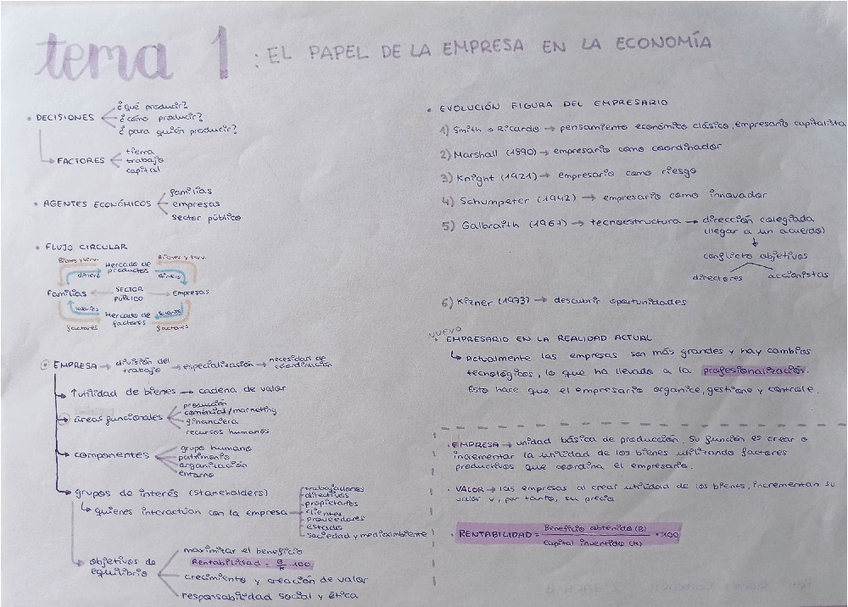 tema 1: EL PAPEL DE LA EMPRESA EN LA ECONOMÍA
• DECISIONES
¿qué producir?
¿cómo producir?
¿para quién producir?
FACTORES
tierra
trabajo
capital
• AGENTES ECONÓMICOS
familias
empresas
sector público
• FLUJO CIRCULAR
Bienes y serv.
Mercado de productos
Bienes y serv.
dinero
dinero
Familias
SECTOR PÚBLICO
empresas
Mercado de factores
factores
factores
EMPRESA → división del trabajo → especialización → necesidad de coordinación
↑utilidad de bienes → cadena de valor
áreas funcionales
producción
comercial/marketing
financiera
recursos humanos
componentes
grupo humano
patrimonio
organización
entorno
grupos de interés (stakeholders)
quienes interactúan con la empresa
trabajadores
directivos
propietarios
clientes
proveedores
estado
sociedad y medioambiente
objetivos de equilibrio
maximizar el beneficio
Rentabilidad = B/K · 100
crecimiento y creación de valor
responsabilidad social y ética
• EVOLUCIÓN FIGURA DEL EMPRESARIO
1) Smith Ricardo → pensamiento económico clásico, empresario capitalista
2) Marshall (1890) → empresario como coordinador
3) Knight (1921) → empresario como riesgo
4) Schumpeter (1942) → empresario como innovador
5) Galbraith (1967) → tecnoestructura → dirección colegiada
(llegar a un acuerdo)
conflicto objetivos
directores
accionistas
6) Kizner (1973) → descubrir oportunidades
NUEVO
EMPRESARIO EN LA REALIDAD ACTUAL
Actualmente las empresas son más grandes y hay cambios
tecnológicos, lo que ha llevado a la profesionalización.
Esto hace que el empresario organice, gestione y controle.
• EMPRESA → unidad básica de producción. Su función es crear o
incrementar la utilidad de los bienes utilizando factores
productivos que coordina el empresario.
• VALOR → las empresas al crear utilidad de los bienes, incrementan su
valor y, por tanto, su precio
• RENTABILIDAD = Beneficio obtenido (B) / Capital invertido (K) · 100